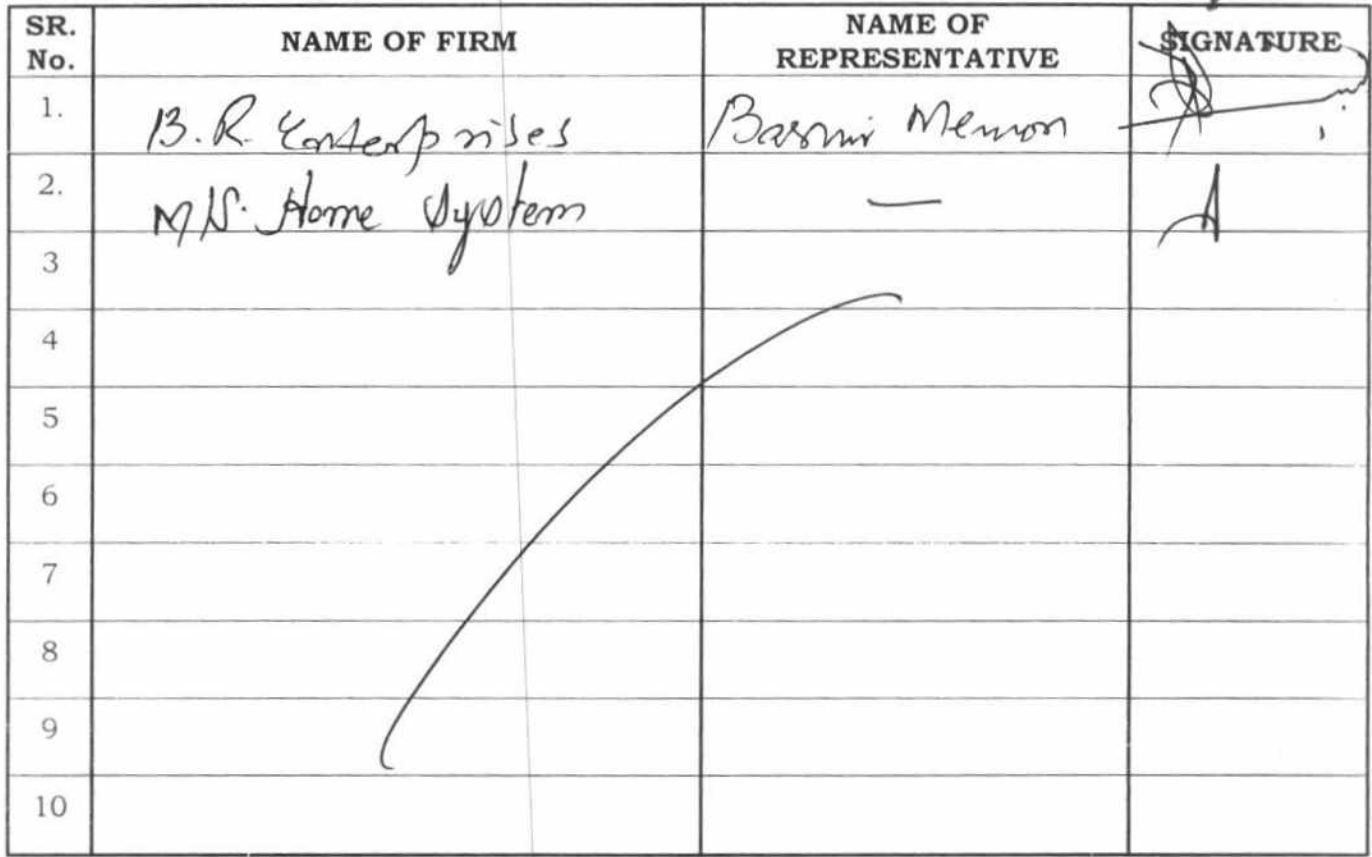 SR. No. NAME OF FIRM NAME OF REPRESENTATIVE SIGNATURE
1. B.R. Enterprises Memon
2. M/S. Home System —
3
4
5
6
7
8
9
10